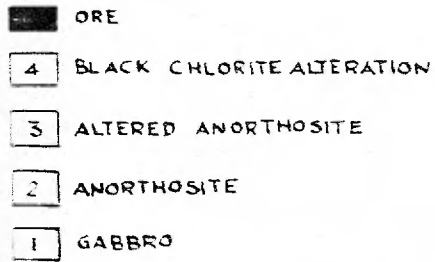 ORE
4 BLACK CHLORITE ALTERATION
3 ALTERED ANORTHOSITE
2 ANORTHOSITE
1 GABBRO